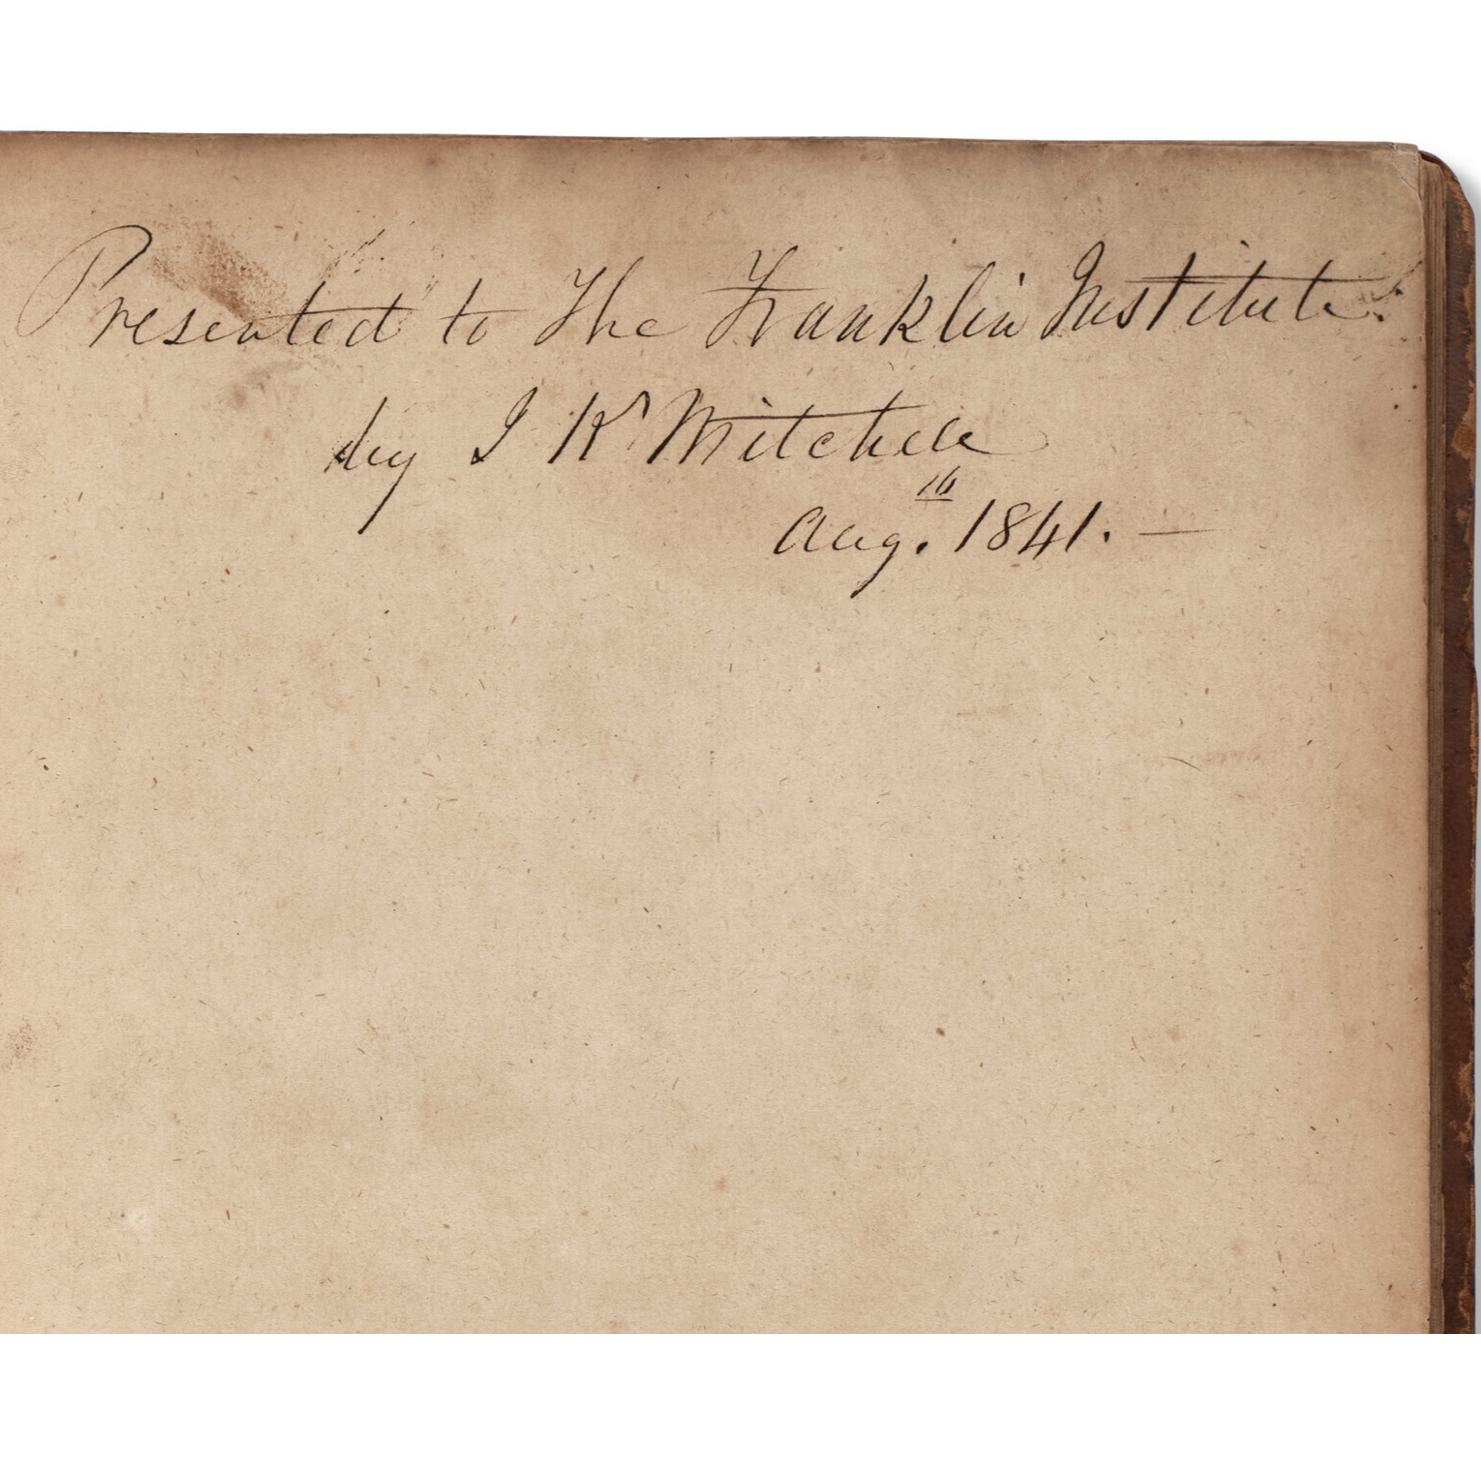 Presented to The Franklin Institute.
by J K Mitchell
Aug. 16 1841. —